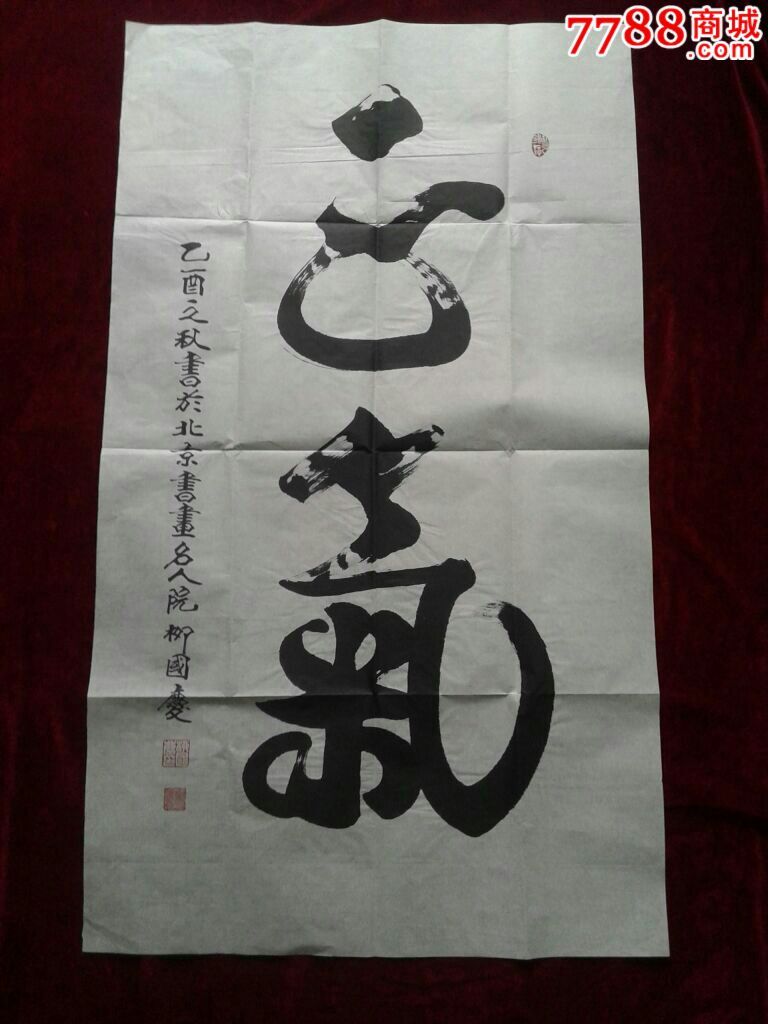 7788商城
.com
正氣
乙酉之秋書於北京書畫名人院柳國慶